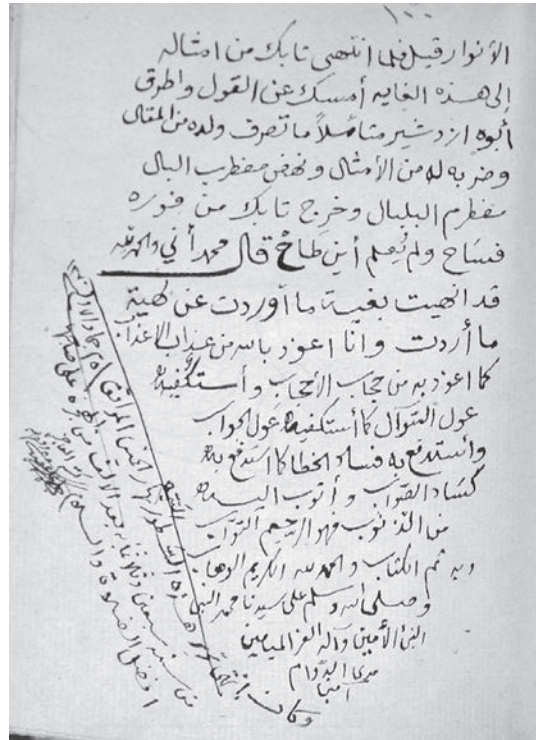 ١٠٠
الأنوار قيل فلما انتهى تابك من امثاله
إلى هذه الغايه أمسك عن القول واطرق
أبوه ازدشير متأملاً ما تصرف ولده من المقال
وضربه له من الأمثال ونهض مضطرب البال
مضطرم البلبال وخرج تابك من فوره
فساح ولم يُعلم أين طاح قال محمد أني والحمد لله
قد انهيت بغية ما أوردت عن كهية
ما أردت وانا اعوذ بالله من عذاب الاعذاب
كما اعوذ به من حجاب الأحجاب وأستكفيه
عول السؤال كما أستكفيه عول الجواب
وأستدفع به فساد الخطا كما استدفع به
كساد الصواب وأتوب اليه
من الذنوب فهو الرحيم التواب
وبه تم الكتاب والحمد لله الكريم الوهاب
وصلى الله وسلم على سيدنا محمد النبي
النبى الأمين وآله الغر الميامين
مدى الدوام
آمين
وكان انتهاء هذه السطور
من سنة سبعين وثلاثمائة بعد الالف من هجرة على صاحبها
افضل الصلاة والسلام